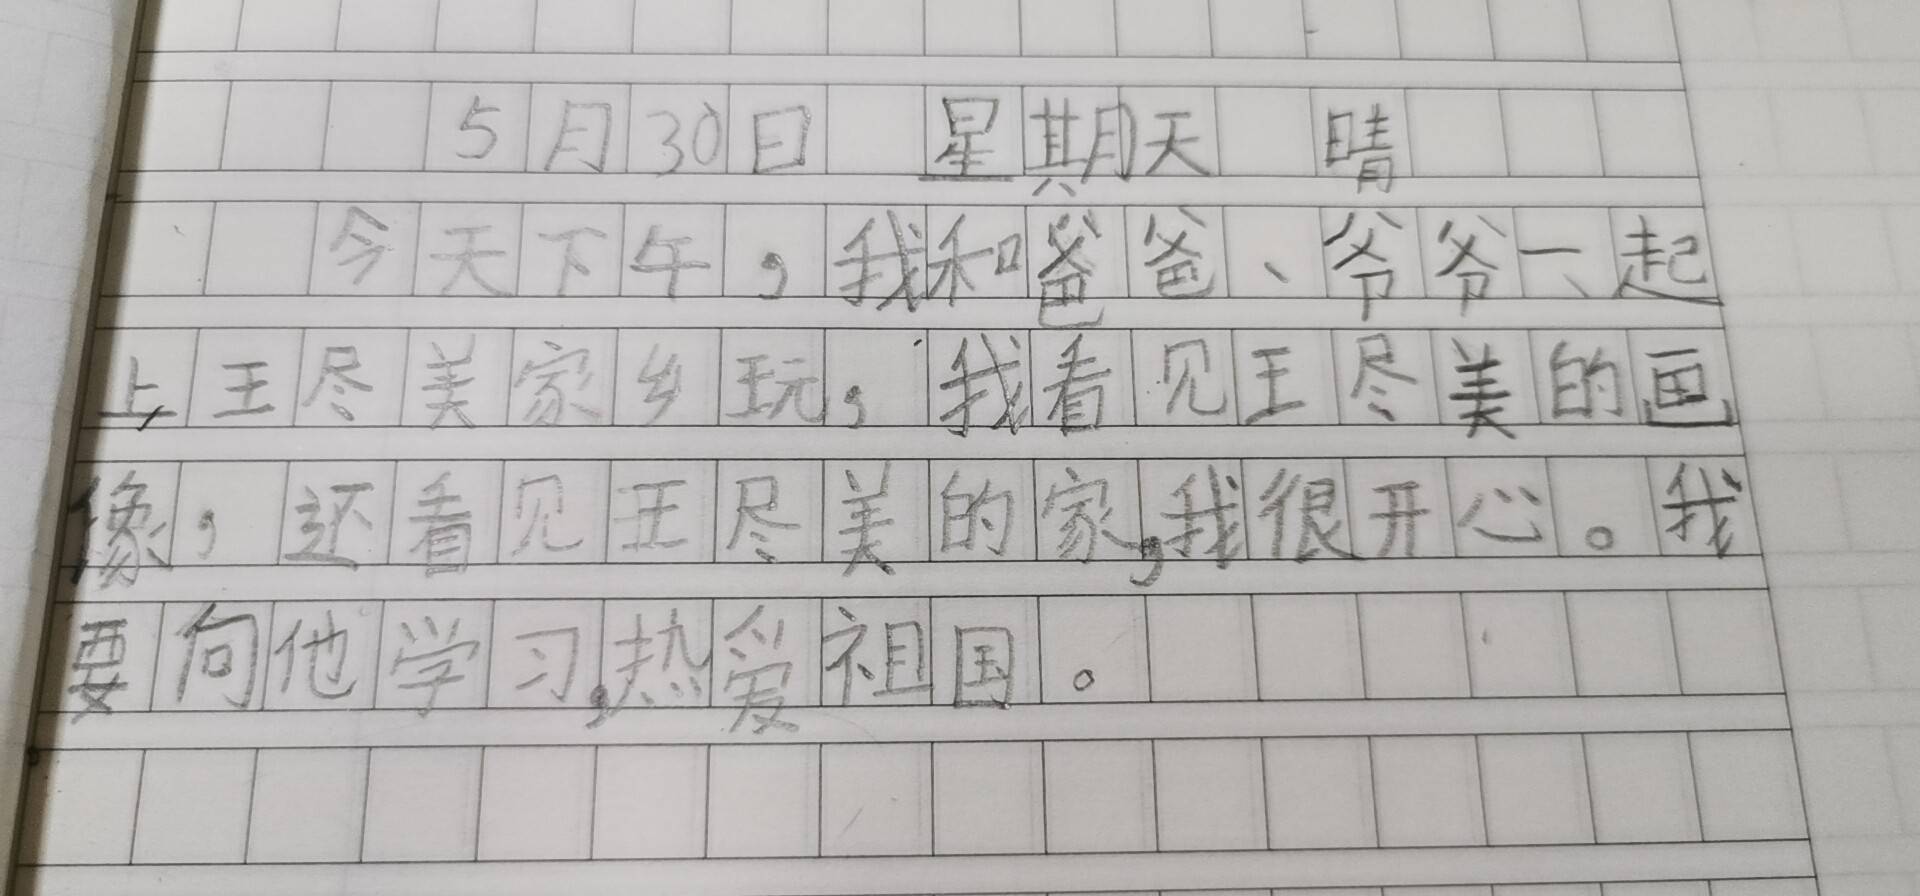 5月30日 星期天 晴
今天下午，我和爸爸、爷爷一起
上王尽美家乡玩，我看见王尽美的画
像，还看见王尽美的家，我很开心。我
要向他学习，热爱祖国。